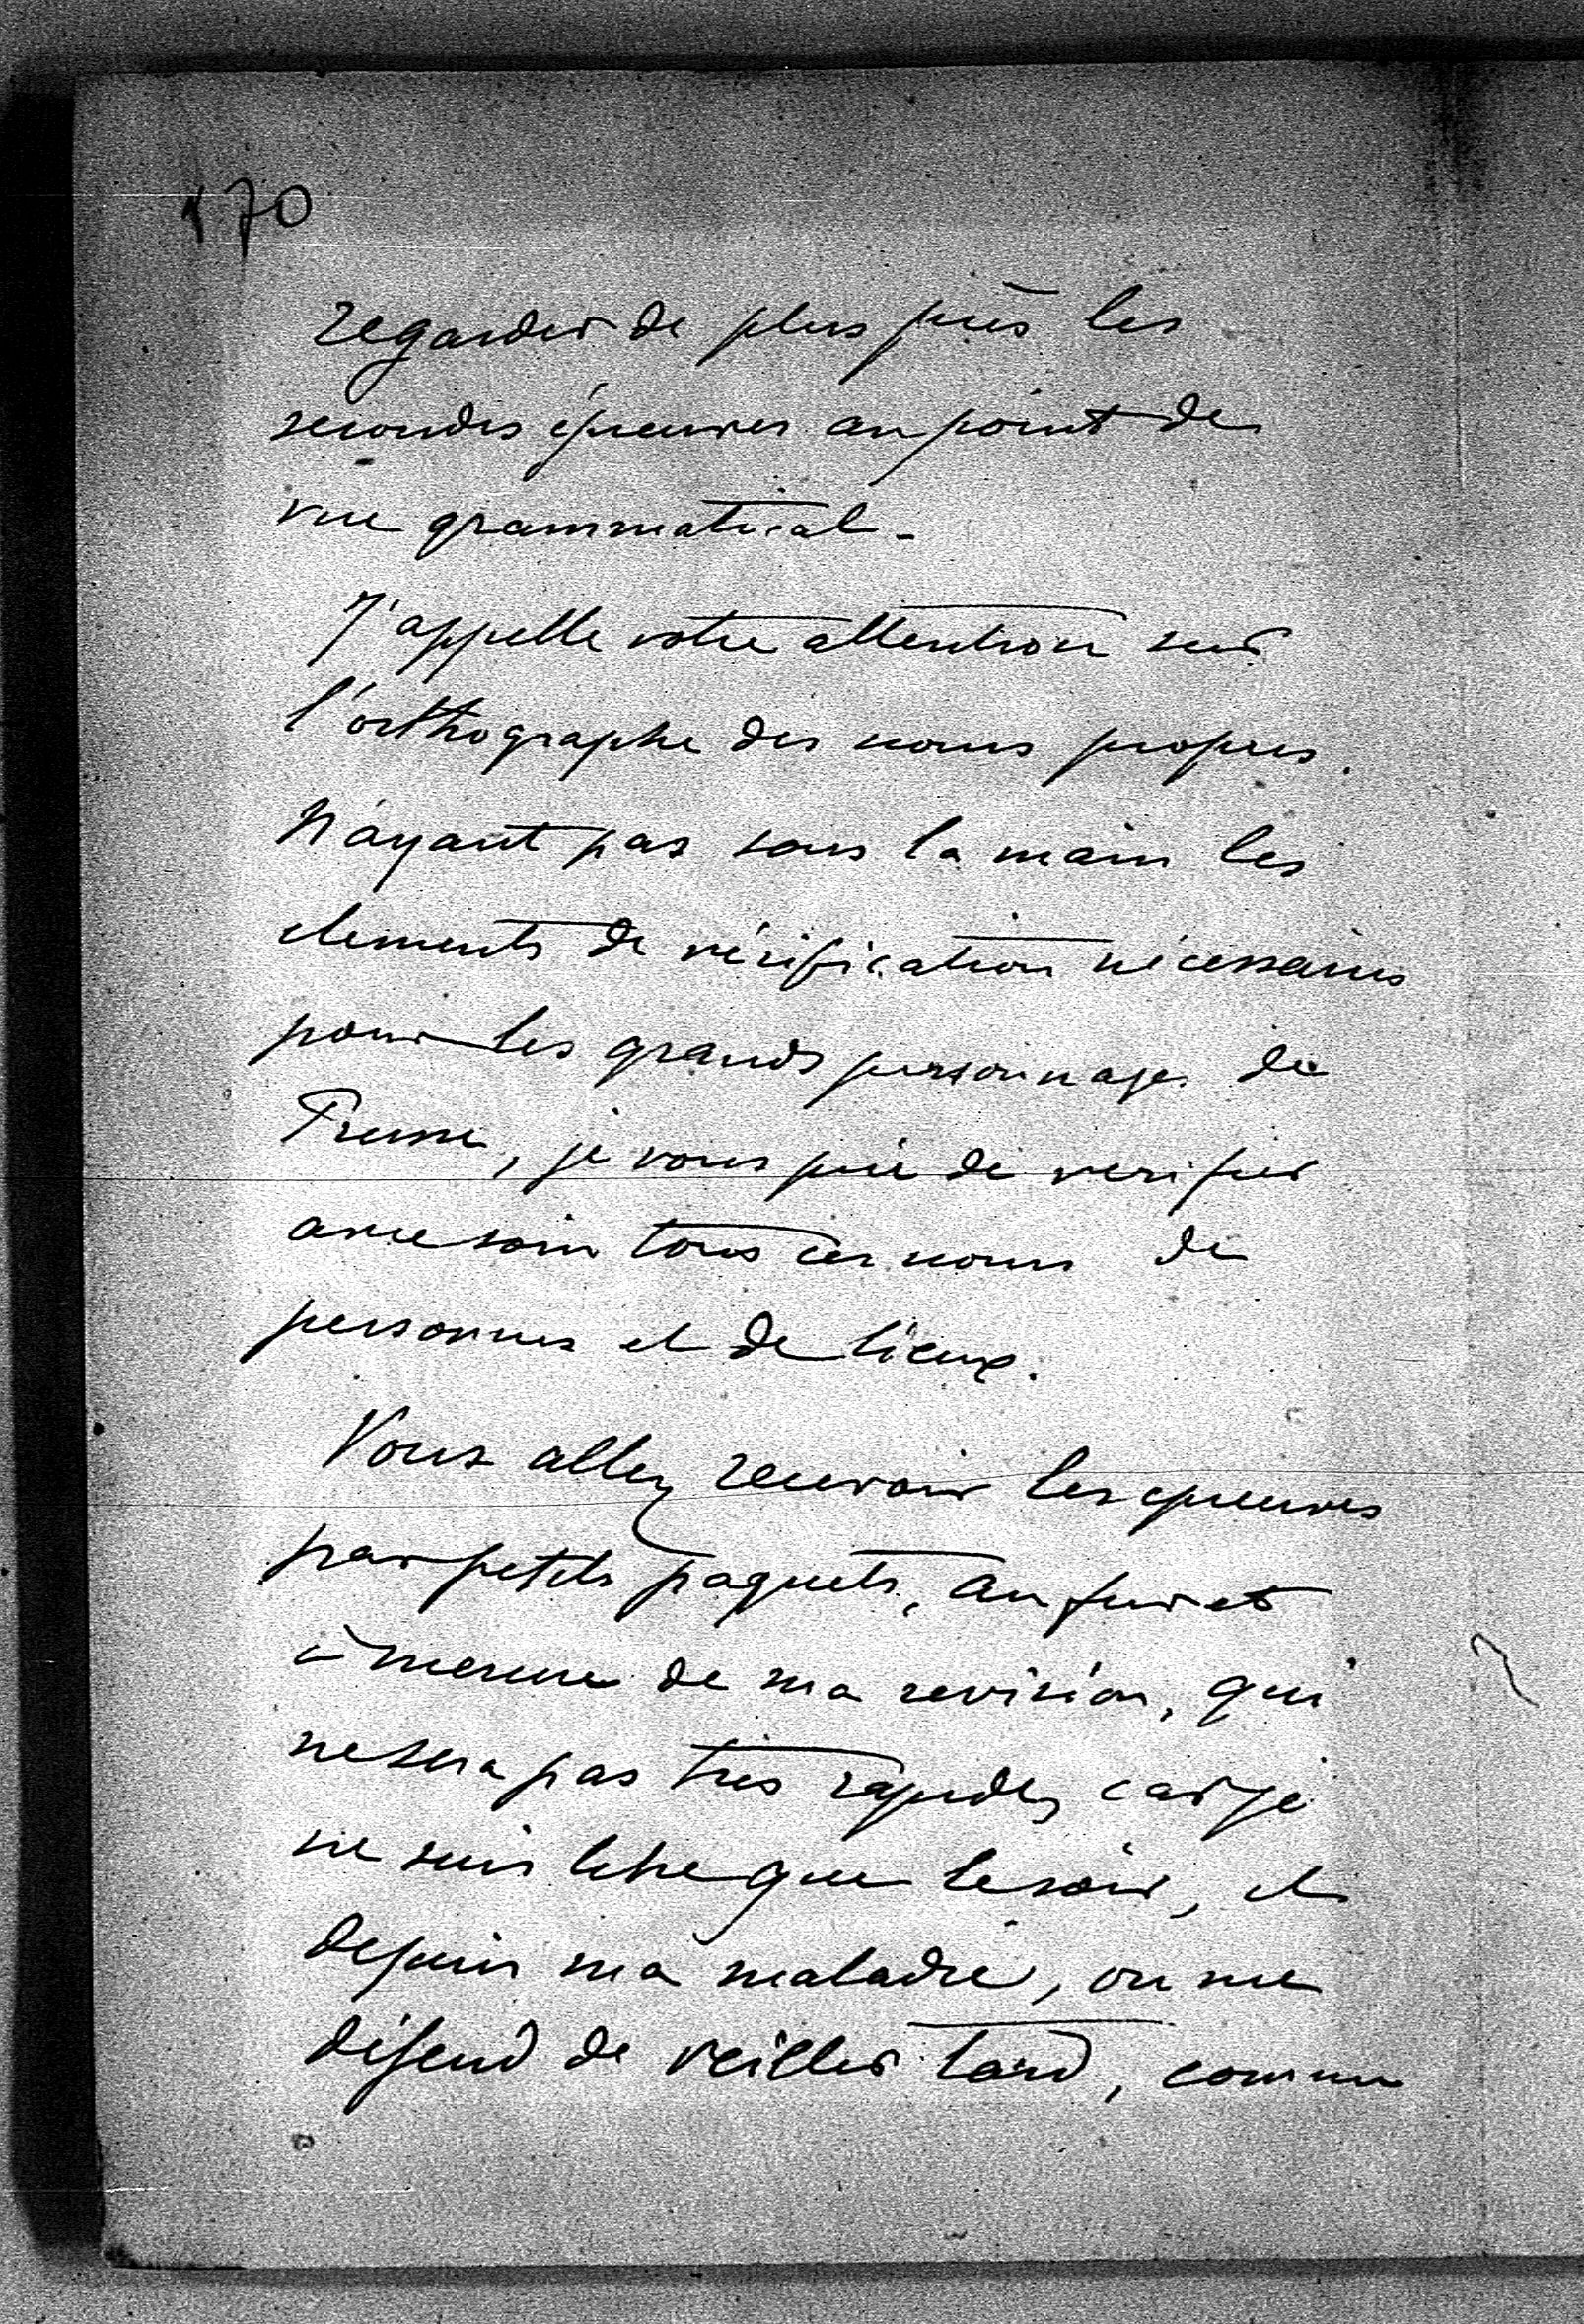 170
regarder de plus près les
secondes épreuves au point de
vue grammatical.
J'appelle votre attention sur
l'orthographe des noms propres.
N'ayant pas sous la main les
elements de vérification nécessaires
pour les grands personnages de
Prusse, je vous prie de verifier
avec soin tous ces noms de
personnes et de lieux.
Vous allez recevoir les epreuves
par petits paquets, au fur et
à mesure de ma revision, qui
ne sera pas très rapide, car je
ne suis libre que le soir, et
depuis ma maladie, on me
défend de veiller tard, comme